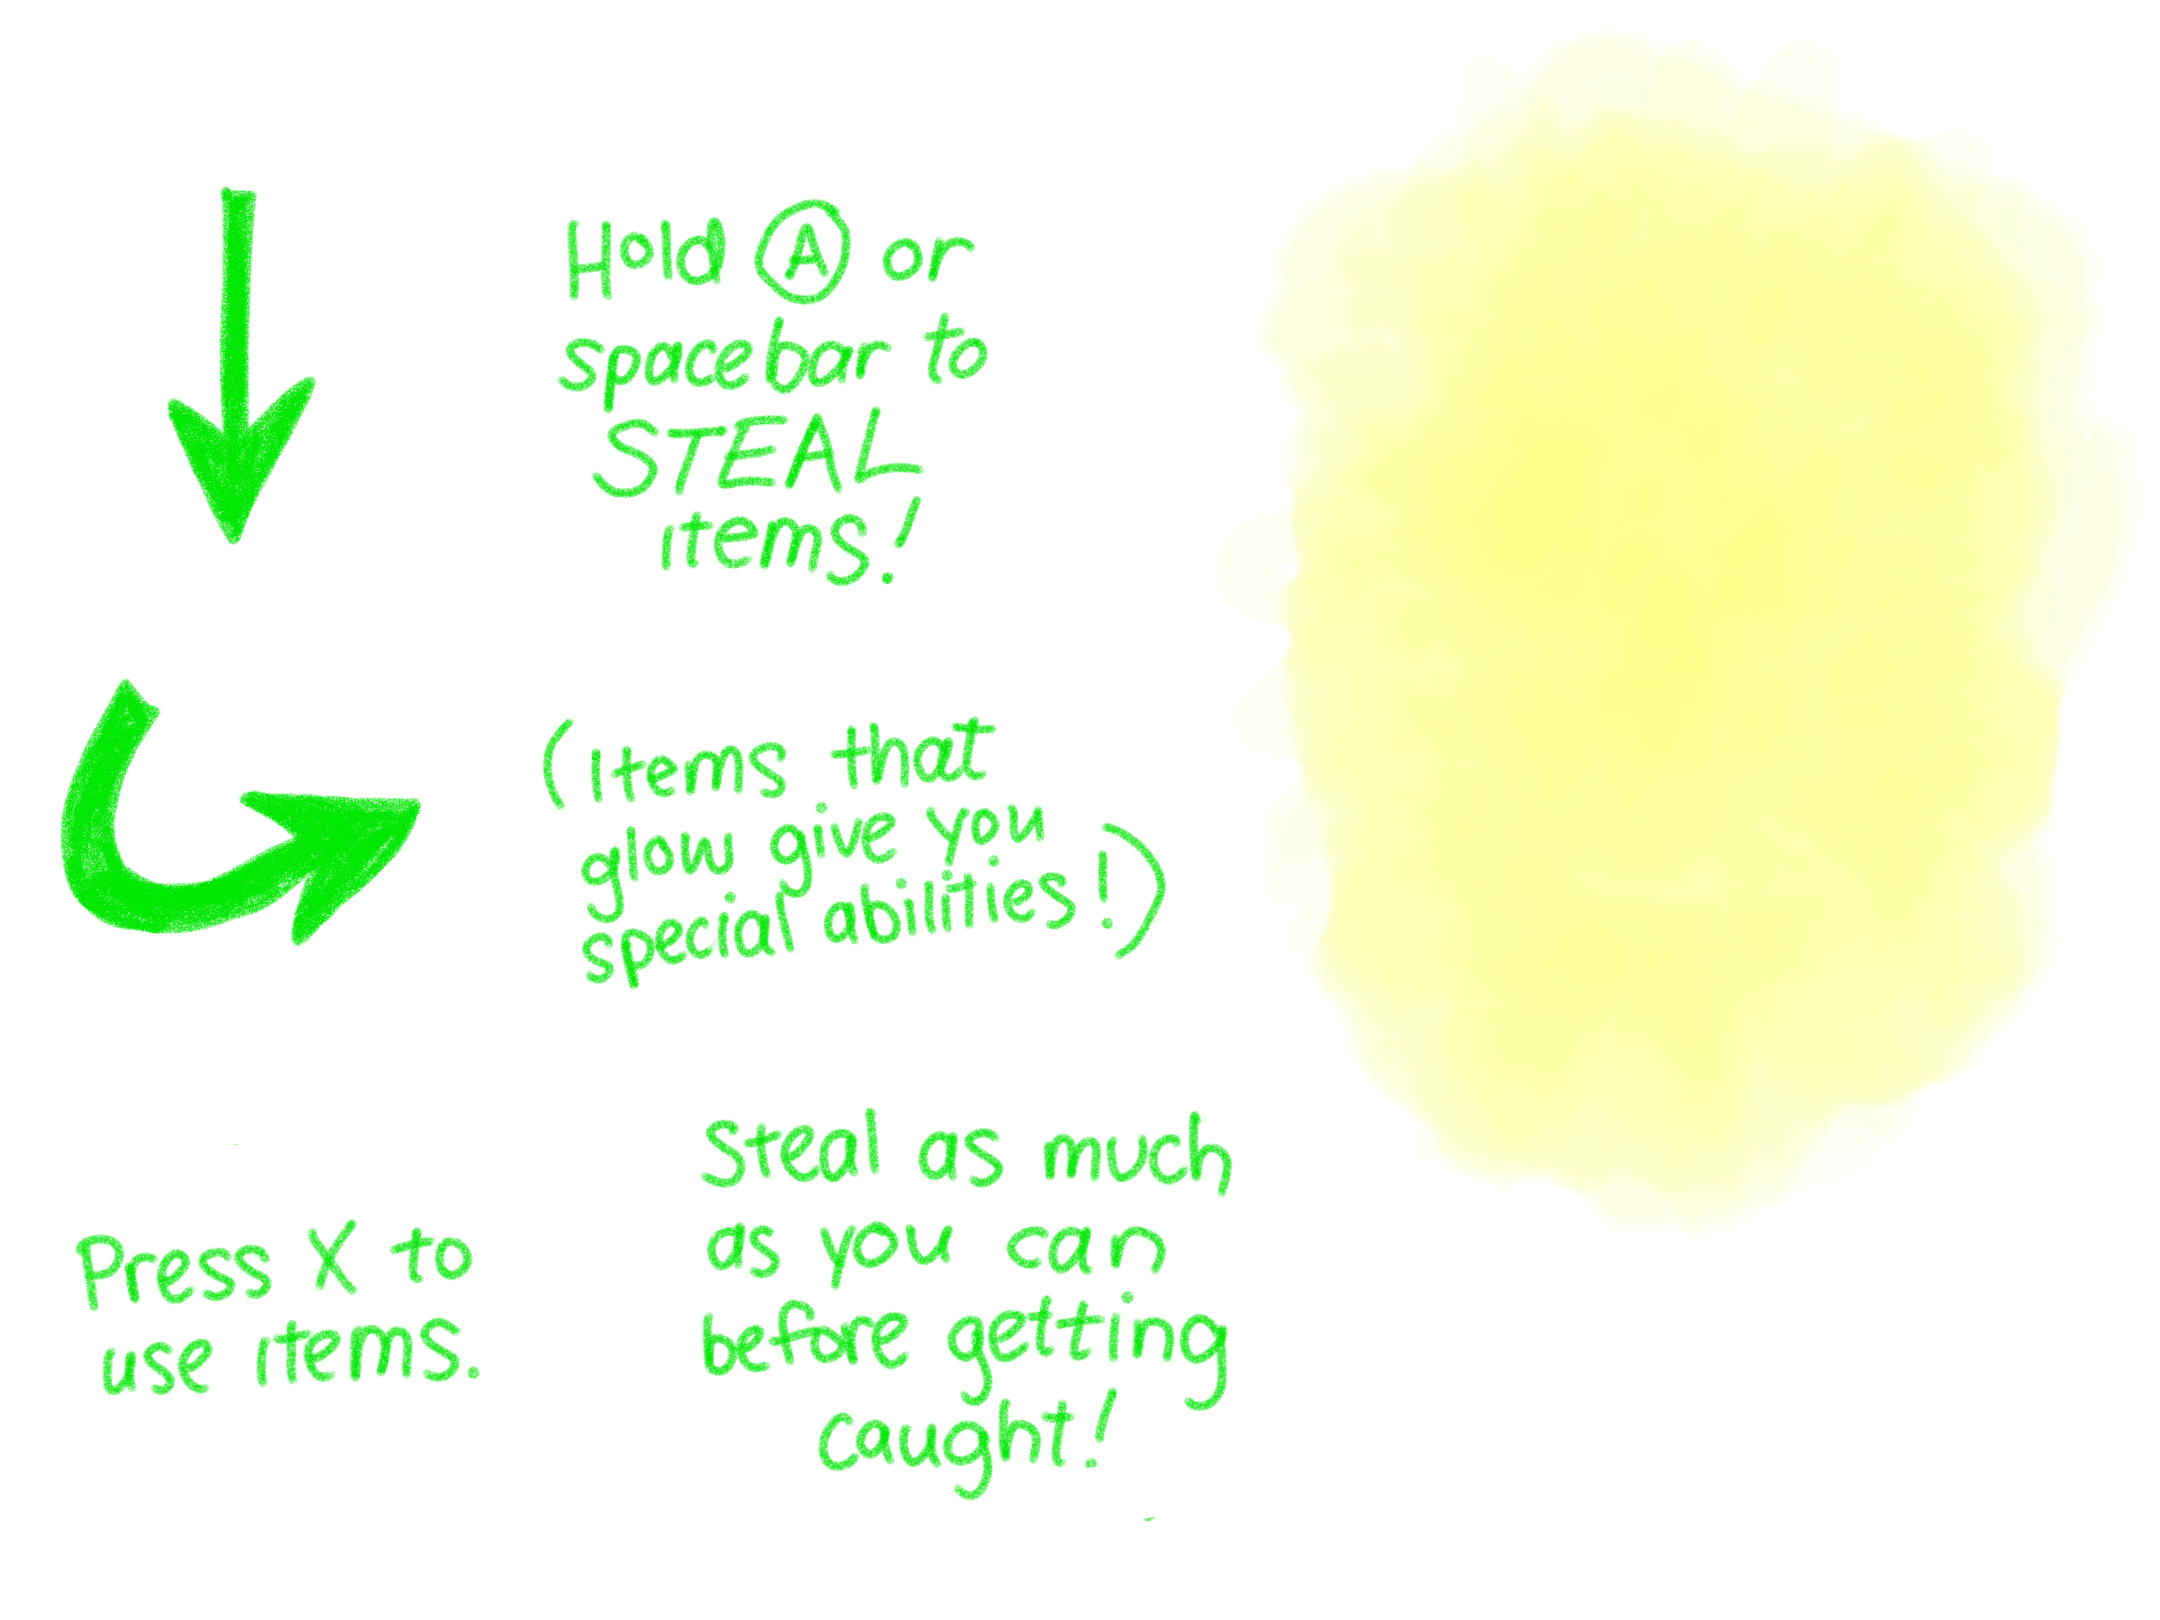 Hold A or
spacebar to
STEAL
items!
(Items that
glow give you
special abilities!)
Press X to
use items.
Steal as much
as you can
before getting
caught!